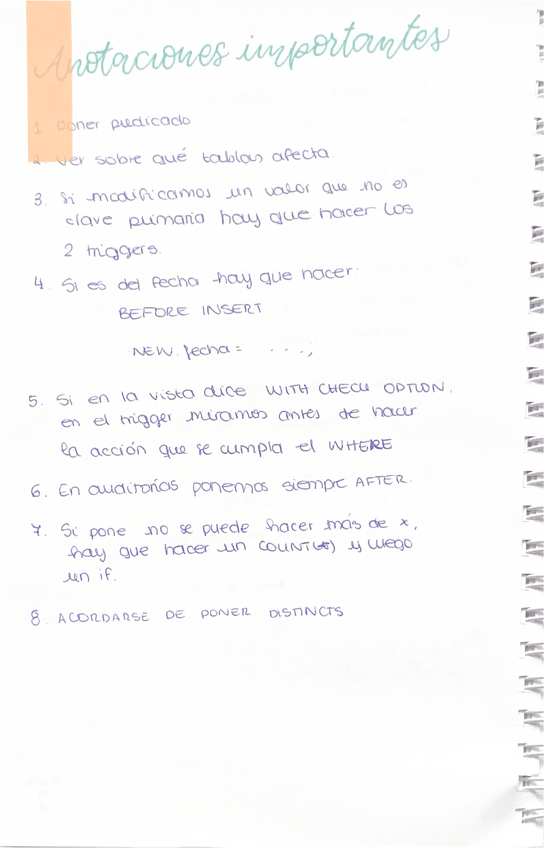 Anotaciones importantes
1. Poner predicado
2. Ver sobre qué tablas afecta.
3. Si modificamos un valor que no es
clave primaria hay que hacer los
2 triggers.
4. Si es del fecha hay que hacer:
BEFORE INSERT
NEW.fecha = ...;
5. Si en la vista dice WITH CHECK OPTION,
en el trigger miramos antes de hacer
la acción que se cumpla el WHERE
6. En auditorías ponemos siempre AFTER.
7. Si pone no se puede hacer más de x,
hay que hacer un COUNT(*) y luego
un if.
8. ACORDARSE DE PONER DISTINCTS